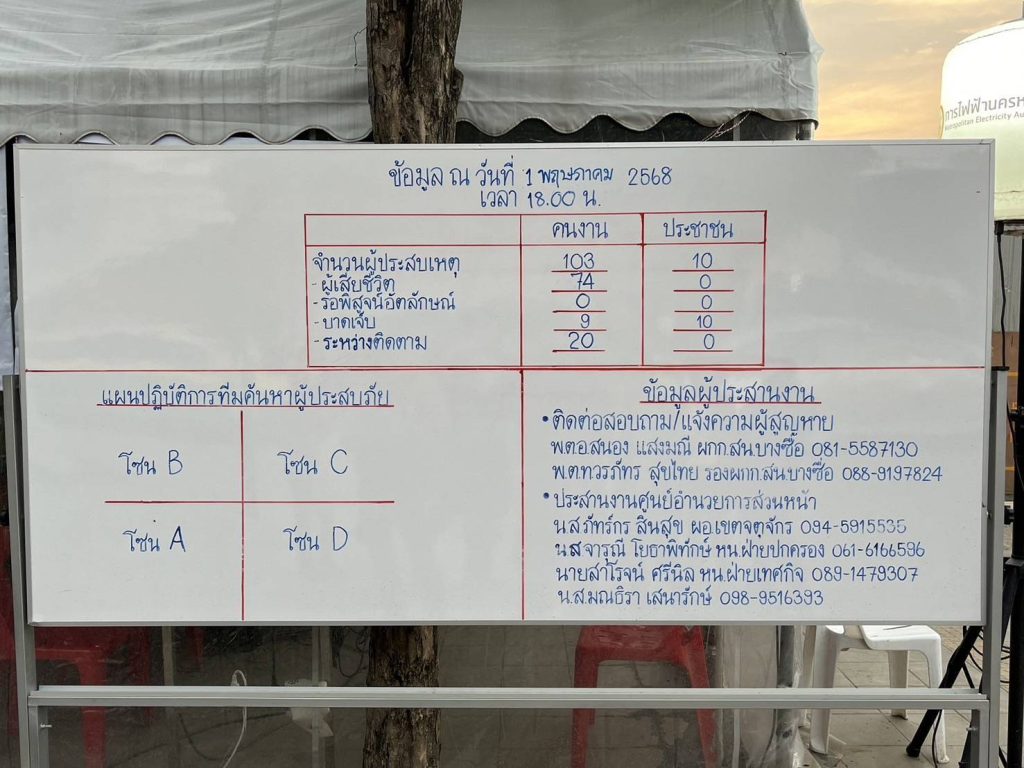 การไฟฟ้านครห
Metropolitan Electricity Au
ข้อมูล ณ วันที่ 1 พฤษภาคม 2568
เวลา 18.00 น.
คนงาน ประชาชน
จำนวนผู้ประสบเหตุ 103 10
- ผู้เสียชีวิต 74 0
- รอพิสูจน์อัตลักษณ์ 0 0
- บาดเจ็บ 9 10
- ระหว่างติดตาม 20 0
แผนปฏิบัติการทีมค้นหาผู้ประสบภัย
โซน B โซน C
โซน A โซน D
ข้อมูลผู้ประสานงาน
• ติดต่อสอบถาม/แจ้งความผู้สูญหาย
พ.ต.อ.สนอง แสงมณี ผกก.สน.บางซื่อ 081-5587130
พ.ต.ท.วรภัทร สุขไทย รองผกก.สน.บางซื่อ 088-9197824
• ประสานงานศูนย์อำนวยการส่วนหน้า
น.ส.ภัทร์กร สินสุข ผอ.เขตจตุจักร 094-5915535
น.ส.จารุณี โยธาพิทักษ์ หน.ฝ่ายปกครอง 061-6166596
นายสาโรจน์ ศรีนิล หน.ฝ่ายเทศกิจ 089-1479307
น.ส.มณธิรา เสนารักษ์ 098-9516393